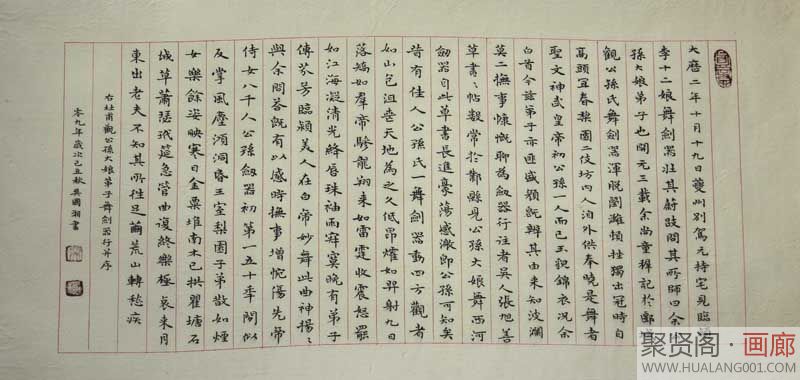 大曆二年十月十九日夔州別駕元持宅見臨
李十二娘舞劍器壯其蔚跂問其所師曰余
孫大娘弟子也開元三載余尚童稚記於郾
觀公孫氏舞劍器渾脫瀏灕頓挫獨出冠時自
高頭宜春梨園二伎坊內人洎外供奉曉是舞者
聖文神武皇帝初公孫一人而已玉貌錦衣況余
白首今茲弟子亦匪盛顏既辨其由來知波瀾
莫二撫事慷慨聊為劍器行往者吳人張旭善
草書〻帖數常於鄴縣見公孫大娘舞西河
劍器自此草書長進豪蕩感激即公孫可知矣
昔有佳人公孫氏一舞劍器動四方觀者
如山色沮喪天地為之久低昂㸌如羿射九日
落矯如群帝驂龍翔來如雷霆收震怒罷
如江海凝清光絳唇珠袖兩寂寞晚有弟子
傳芬芳臨潁美人在白帝妙舞此曲神揚〻
與余問答既有以感時撫事增惋傷先帝
侍女八千人公孫劍器初第一五十年間似
反掌風塵澒洞昏王室梨園子弟散如煙
女樂餘姿映寒日金粟堆南木已拱瞿塘石
城草蕭瑟玳筵急管曲復終樂極哀來月
東出老夫不知其所往足繭荒山轉愁疾
右杜甫觀公孫大娘弟子舞劍器行并序
零九年歲次己丑秋吳國湘書
聚贤阁·画廊
WWW.HUALANG001.COM